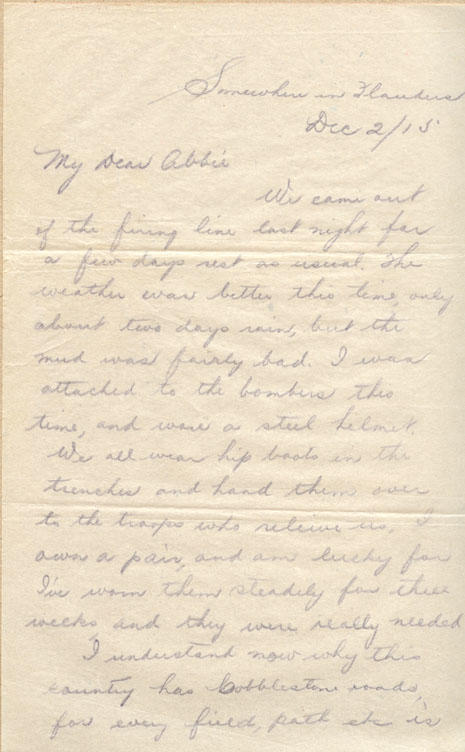 Somewhere in Flanders
Dec 2/15
My Dear Abbie
We came out
of the firing line last night for
a few days rest as usual. The
weather was better this time, only
about two days rain, but the
mud was fairly bad. I was
attached to the bombers this
time, and wore a steel helmet.
We all wear hip boots in the
trenches and hand them over
to the troops who relieve us. I
own a pair, and am lucky for
I've worn them steadily for three
weeks, and they were really needed
I understand now why this
country has Cobblestone roads,
for every field, path etc is